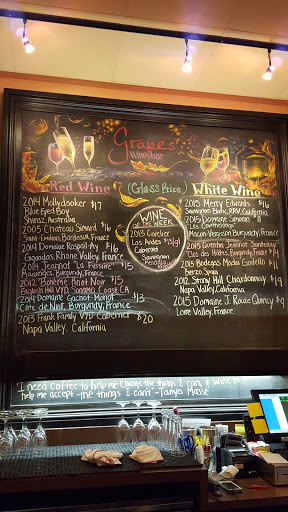 Grapes
Wine bar
Red Wine
(Glass Price)
White Wine
2014 Mollydooker $17
Blue Eyed Boy
Shiraz, Australia
2005 Chateau Simard $16
Saint-Emilion, Bordeaux, France
2014 Domaine Raspail-Ay $16
Gigondas, Rhone Valley, France
2014 Jeannot "La Fussiere" $15
Maranges, Burgundy, France
2012 Bonterra Pinot Noir $15
VYD, Sonoma Coast CA
2014 Domaine Gachot-Monot $13
Cote de Nuit, Burgundy, France
2013 Frank Family VYD Cabernet $20
Napa Valley, California
WINE
OF THE WEEK
2013 Cuvelier
Los Andes
Cabernet
Sauvignon
Mendoza
2015 Merry Edwards $16
Sauvignon Blanc, RRV, California
2015 Domaine Simonin $11
Macon-Vergisson, Burgundy, France
2015 Quentin Jeannot Santenay
"Clos des Hates", Burgundy, France
2015 Bodegas Godello $11
Bierzo, Spain
2012 Stony Hill Chardonnay
Napa Valley, California
2015 Domaine J. Rouze Quincy $9
Loire Valley, France
I need coffee to help me change the things I can, & wine to
help me accept the things I can't -Tanya Masse